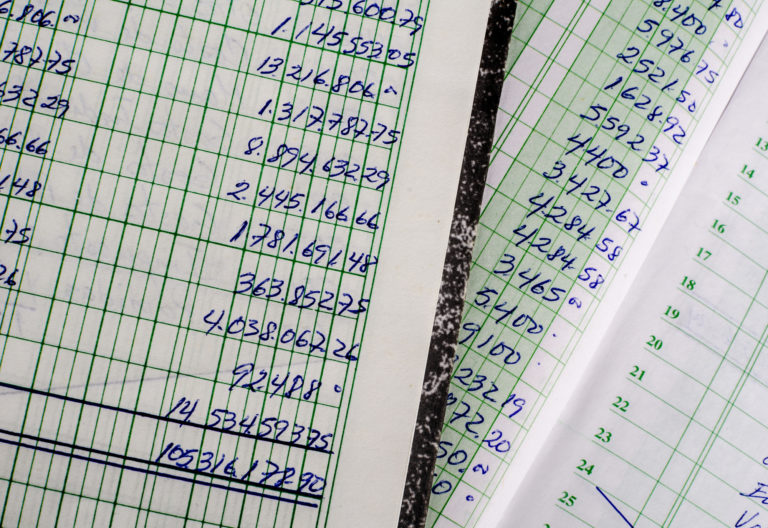 6.806.~
787.75
332.29
66.66
.148
.75
26
515600.79
1.145553.05
13.216.806.~
1.317.787.75
8.894.632.29
2.445.166.66
1781.691,48
363.852.75
4.038.067.26
92488 -
14 53459375
105316.178.90
8400 -
5976.75
2521.50
1628.92
5592 37
4400 -
3.427.67
4284.58
4284.58
3.465 ~
5.400 -
9100 -
232.19
72.20
50.~
0 -
13
14
15
16
17
18
19
20
21
22
23
24
25